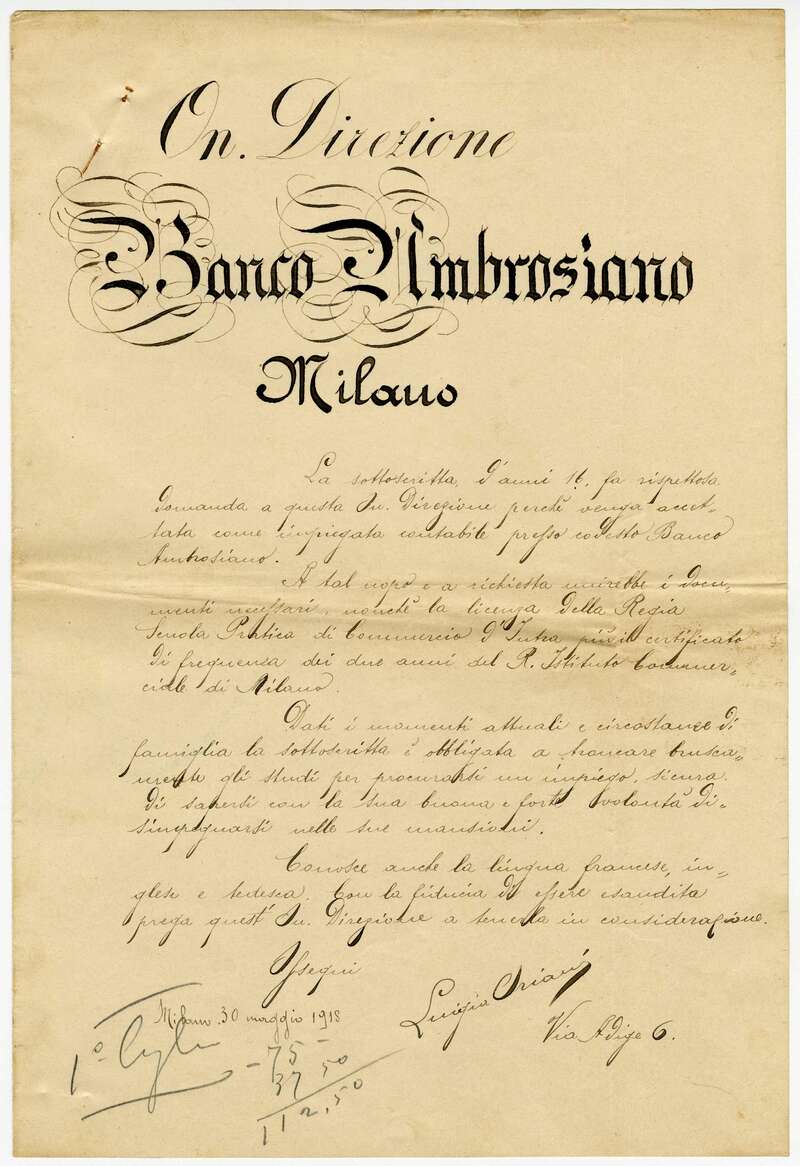 On. Direzione
Banco Ambrosiano
Milano
La sottoscritta, d'anni 16, fa rispettosa
domanda a questa On. Direzione perchè venga accet-
tata come impiegata contabile presso codesto Banco
Ambrosiano.
A tal uopo e a richiesta unirebbe i docu-
menti necessari, nonchè la licenza della Regia
Scuola Pratica di Commercio d'Intra più il certificato
di frequenza dei due anni del R. Istituto Commer-
ciale di Milano.
Dati i momenti attuali e circostanze di
famiglia la sottoscritta è obbligata a troncare brusca-
mente gli studi per procurarsi un impiego, sicura
di sapersi con la sua buona e forte volontà di-
simpegnarsi nelle sue mansioni.
Conosce anche la lingua francese, in-
glese e tedesca. Con la fiducia di essere esaudita
prega quest'On. Direzione a tenerla in considerazione.
Ossequi
Luigia Oriani
Milano. 30 maggio 1918
Via Adige 6.
1° - 75 -
37 50
112,50